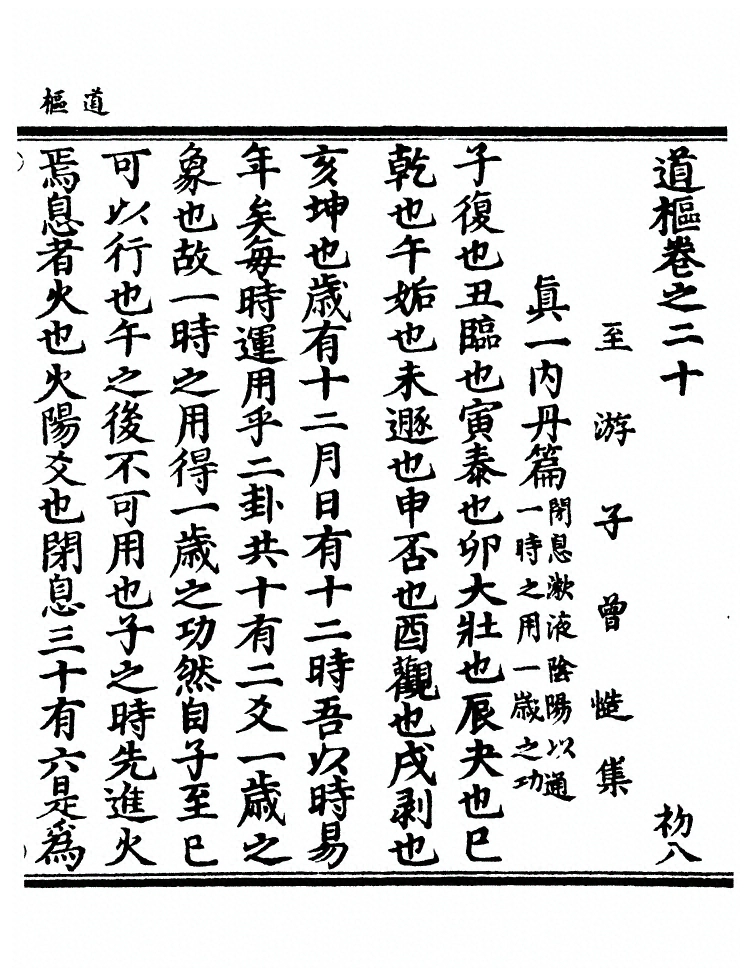 道樞
道樞卷之二十
至游子曾慥集
眞一內丹篇
閉息漱液陰陽以通
一時之用一歲之功
子復也丑臨也寅泰也卯大壯也辰夬也巳
乾也午姤也未遯也申否也酉觀也戌剥也
亥坤也歲有十二月日有十二時吾以時易
年矣每時運用乎二卦共十有二爻一歲之
象也故一時之用得一歲之功然自子至巳
可以行也午之後不可用也子之時先進火
焉息者火也火陽爻也閉息三十有六是爲